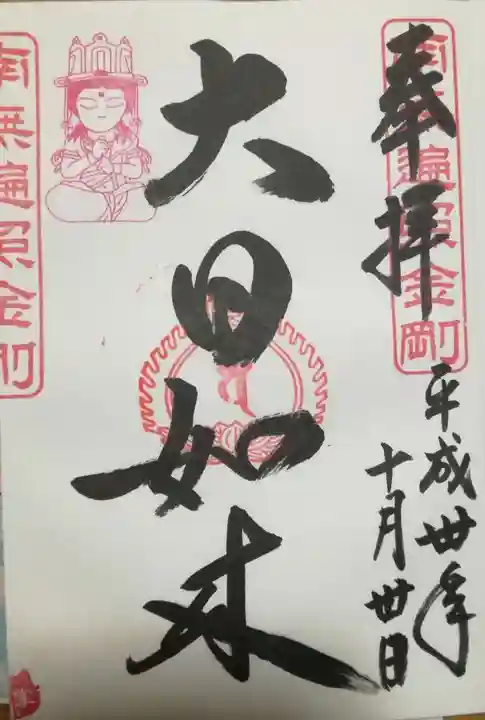 奉拝
南無遍照金剛
平成卅年
十月卅日
大日如来
南無遍照金剛